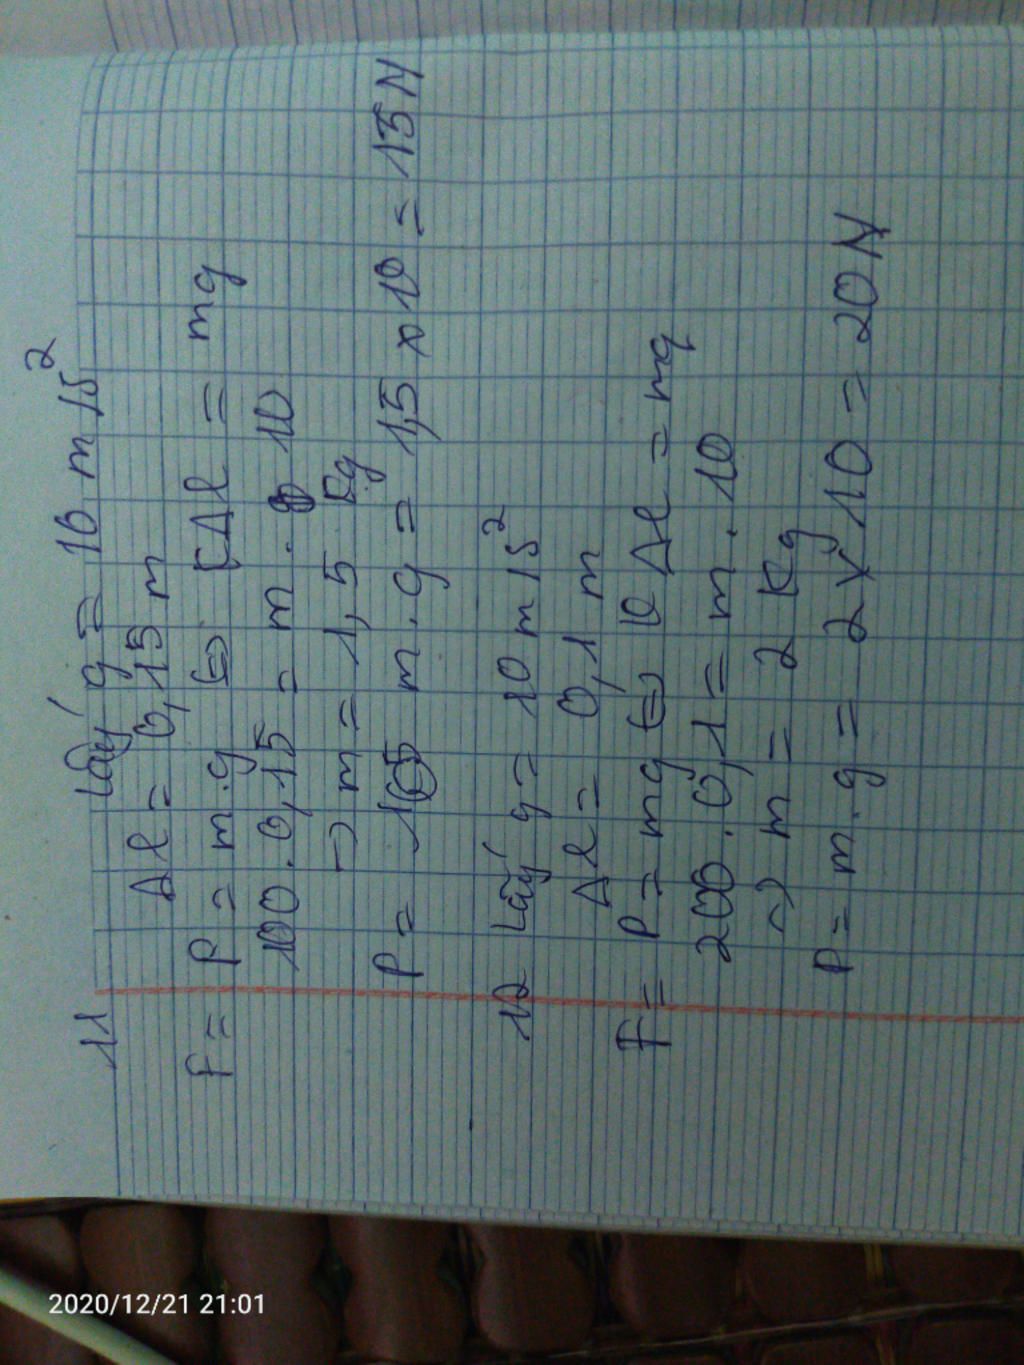 11 Lấy g = 10 m/s²
Δl = 0,15 m
F = P = m.g ⇔ kΔl = mg
100.0,15 = m.10
⇒ m = 1,5 kg
P = m.g = 1,5 x 10 = 15N
12 Lấy g = 10 m/s²
Δl = 0,1 m
F = P = mg ⇔ kΔl = mg
200.0,1 = m.10
⇒ m = 2 Kg
P = m.g = 2x10 = 20N
2020/12/21 21:01